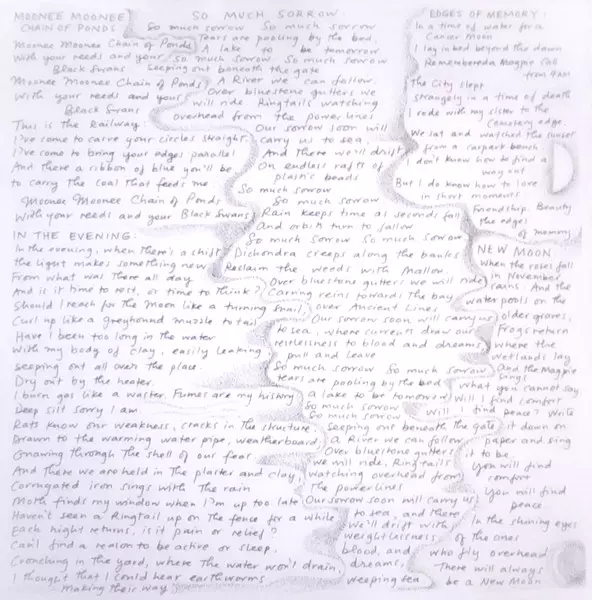 MOONEE MOONEE
CHAIN OF PONDS
Moonee Moonee Chain of Ponds
With your reeds and your
Black Swans
Moonee Moonee Chain of Ponds
With your reeds and your
Black Swans
This is the Railway.
I've come to carve your circles straight.
I've come to bring your edges parallel
And there a ribbon of blue you'll be
to carry the coal that feeds me.
Moonee Moonee Chain of Ponds
With your reeds and your Black Swans
IN THE EVENING:
In the evening, when there's a shift
the light makes something new
From what was there all day
And is it time to rest, or time to think?
Should I reach for the Moon like a turning snail,
Curl up like a greyhound muzzle to tail
Have I been too long in the water
With my body of clay, easily leaking
seeping out all over the place.
Dry out by the heater.
I burn gas like a waster. Fumes are my history
Deep silt sorry I am
Rats know our weakness, cracks in the structure
Drawn to the warming water pipe, weatherboard,
Gnawing through the shell of our fear
And there we are held in the plaster and clay,
Corrugated iron sings with the rain
Moth finds my window when I'm up too late
Haven't seen a Ringtail up on the fence for a while
Each night returns, is it pain or relief?
Can't find a reason to be active or sleep.
Crouching in the yard, where the water won't drain,
I thought that I could hear earthworms
making their way
SO MUCH SORROW
So much sorrow So much sorrow
Tears are pooling by the bed
A lake to be tomorrow
So much sorrow So much sorrow
Seeping out beneath the gate
A River we can follow.
Over bluestone gutters we
will ride Ringtails watching
overhead from the power lines
Our sorrow soon will
carry us to sea,
And there we'll drift
On endless rafts of
plastic beads
So much sorrow
So much sorrow
Rain keeps time as seconds fall
And orbit turn to fallow
So much sorrow So much sorrow
Dichondra creeps along the
Reclaim the weeds with Mallow.
Over bluestone gutters we will ride
Carving reins towards the bay,
over Ancient Lines
Our sorrow soon will carry us
to sea, where currents draw our
restlessness to blood and dreams
pull and leave
So much sorrow So much sorrow
tears are pooling by the bed
a lake to be tomorrow
So much sorrow
So much sorrow
Seeping out beneath the gate
a River we can follow
Over bluestone gutters
we will ride, Ringtails
watching overhead from
the powerlines
Our sorrow soon will carry us
to sea, and there
we'll drift with
weightlessness,
blood, and
dreams,
weeping sea
EDGES OF MEMORY:
In a time of water for a
Cancer Moon
I lay in bed beyond the dawn
Remembered a Magpie Call
from 4am
the City slept
strangely in a time of death
I rode with my sister to the
cemetery edge
We sat and watched the sunset
from a carpark bench
I don't know how to find a
way out
But I do know how to love
in short moments
Friendship. Beauty
the edges
of memory
NEW MOON
When the roses fall
in November
rains. And the
water pools on the
older graves,
Frogs return
where the
wetlands lay
And the Magpie
sings
What you cannot say
Will I find comfort
Will I find peace? Write
it down on
paper and sing
it to be.
You will find
comfort
You will find
peace.
In the shining eyes
of the ones
who fly overhead
There will always
be a New Moon